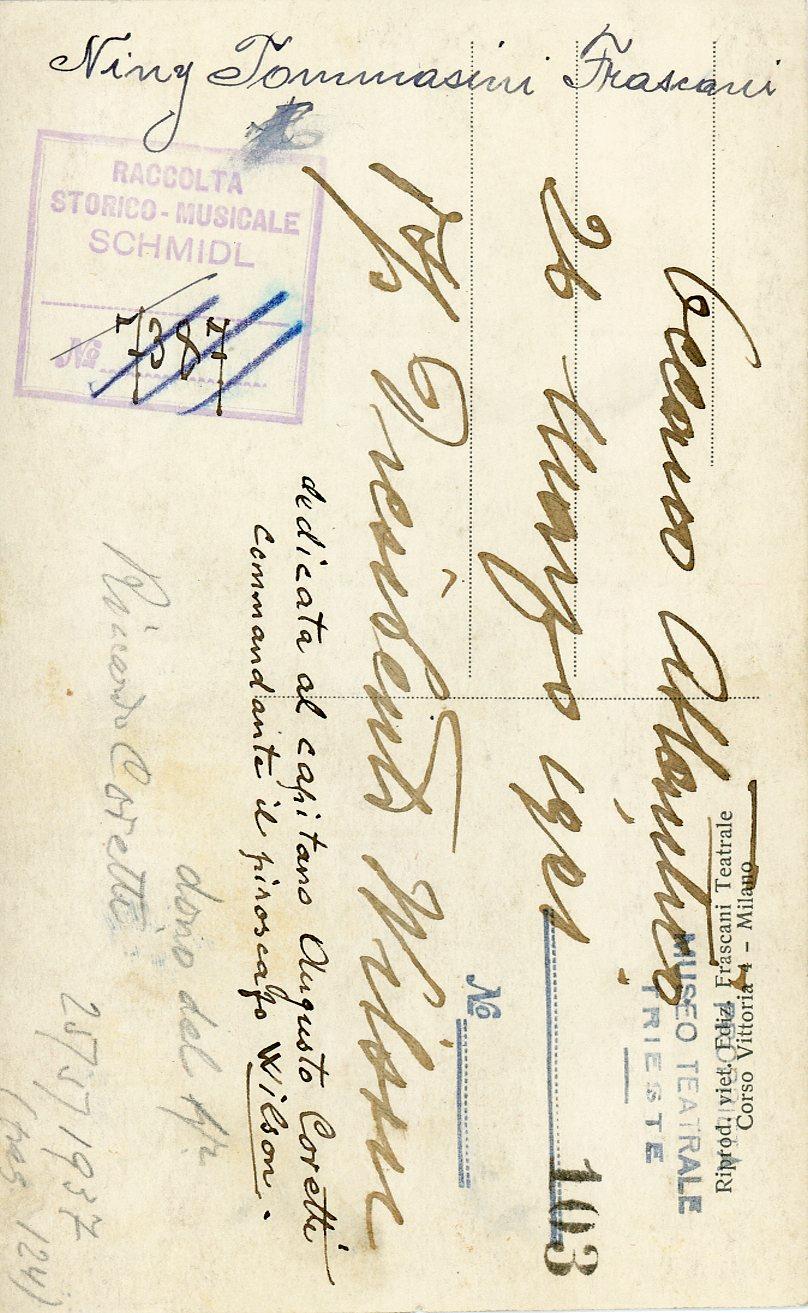 Niny Tommasini Frascani
RACCOLTA
STORICO-MUSICALE
SCHMIDL
No
Oceano Atlantico
26 Marzo 1921
Presidente Wilson
dedicata al capitano Augusto Coretti
commandante il piroscafo Wilson.
dono del
Riccardo Coretti
25/5/1937
(pag. 124)
No
103
MUSEO TEATRALE
TRIESTE
Riprod. viet. Ediz. Frascani Teatrale
Corso Vittoria 4 - Milano